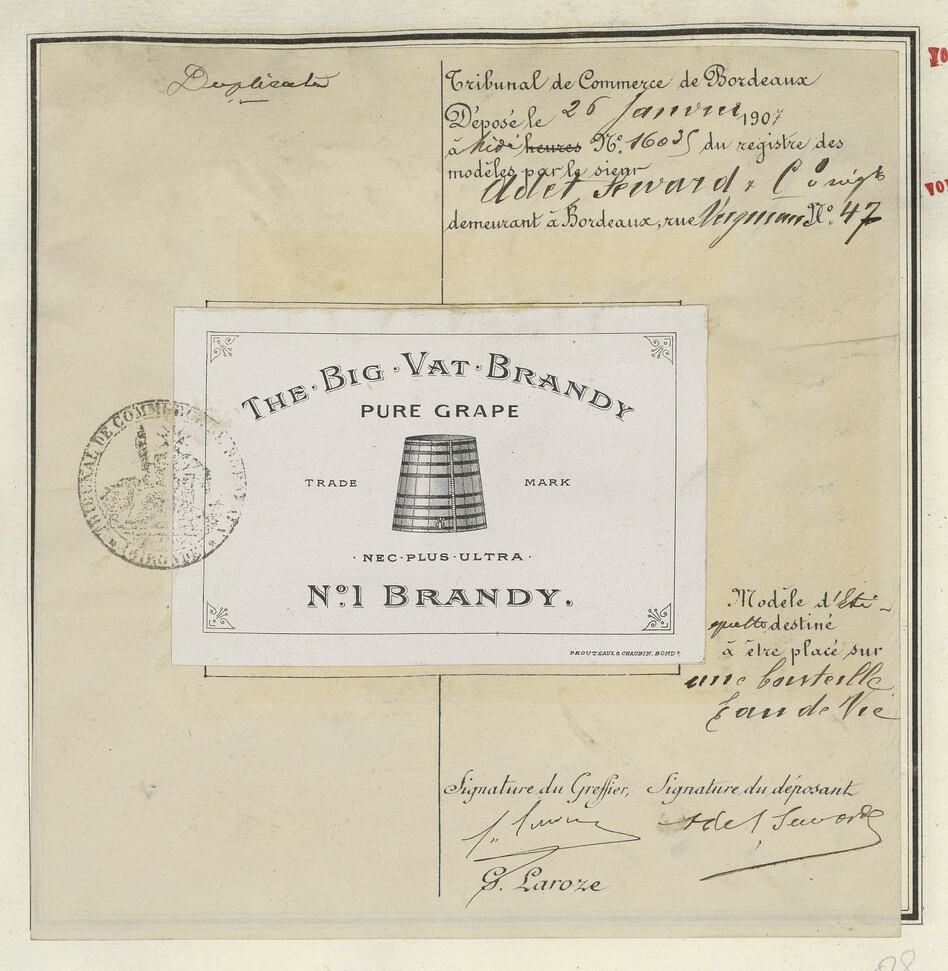 Duplicata
Tribunal de Commerce de Bordeaux
Déposé le 26 Janvier 1907
à Midi heures No. 16035 du registre des
modèles par le sieur
Adet, Seward & Co
demeurant à Bordeaux, rue No. 47
THE · BIG · VAT · BRANDY
PURE GRAPE
TRADE MARK
· NEC · PLUS · ULTRA ·
No. 1 BRANDY.
PROUTEAUX & CHAUBIN, BORDX
TRIBUNAL DE COMMERCE
* (GIRONDE) *
Modèle d'Éti-
quette destiné
à être placé sur
une bouteille
Eau de Vie
Signature du Greffier, Signature du déposant
Adet Seward
G. Laroze